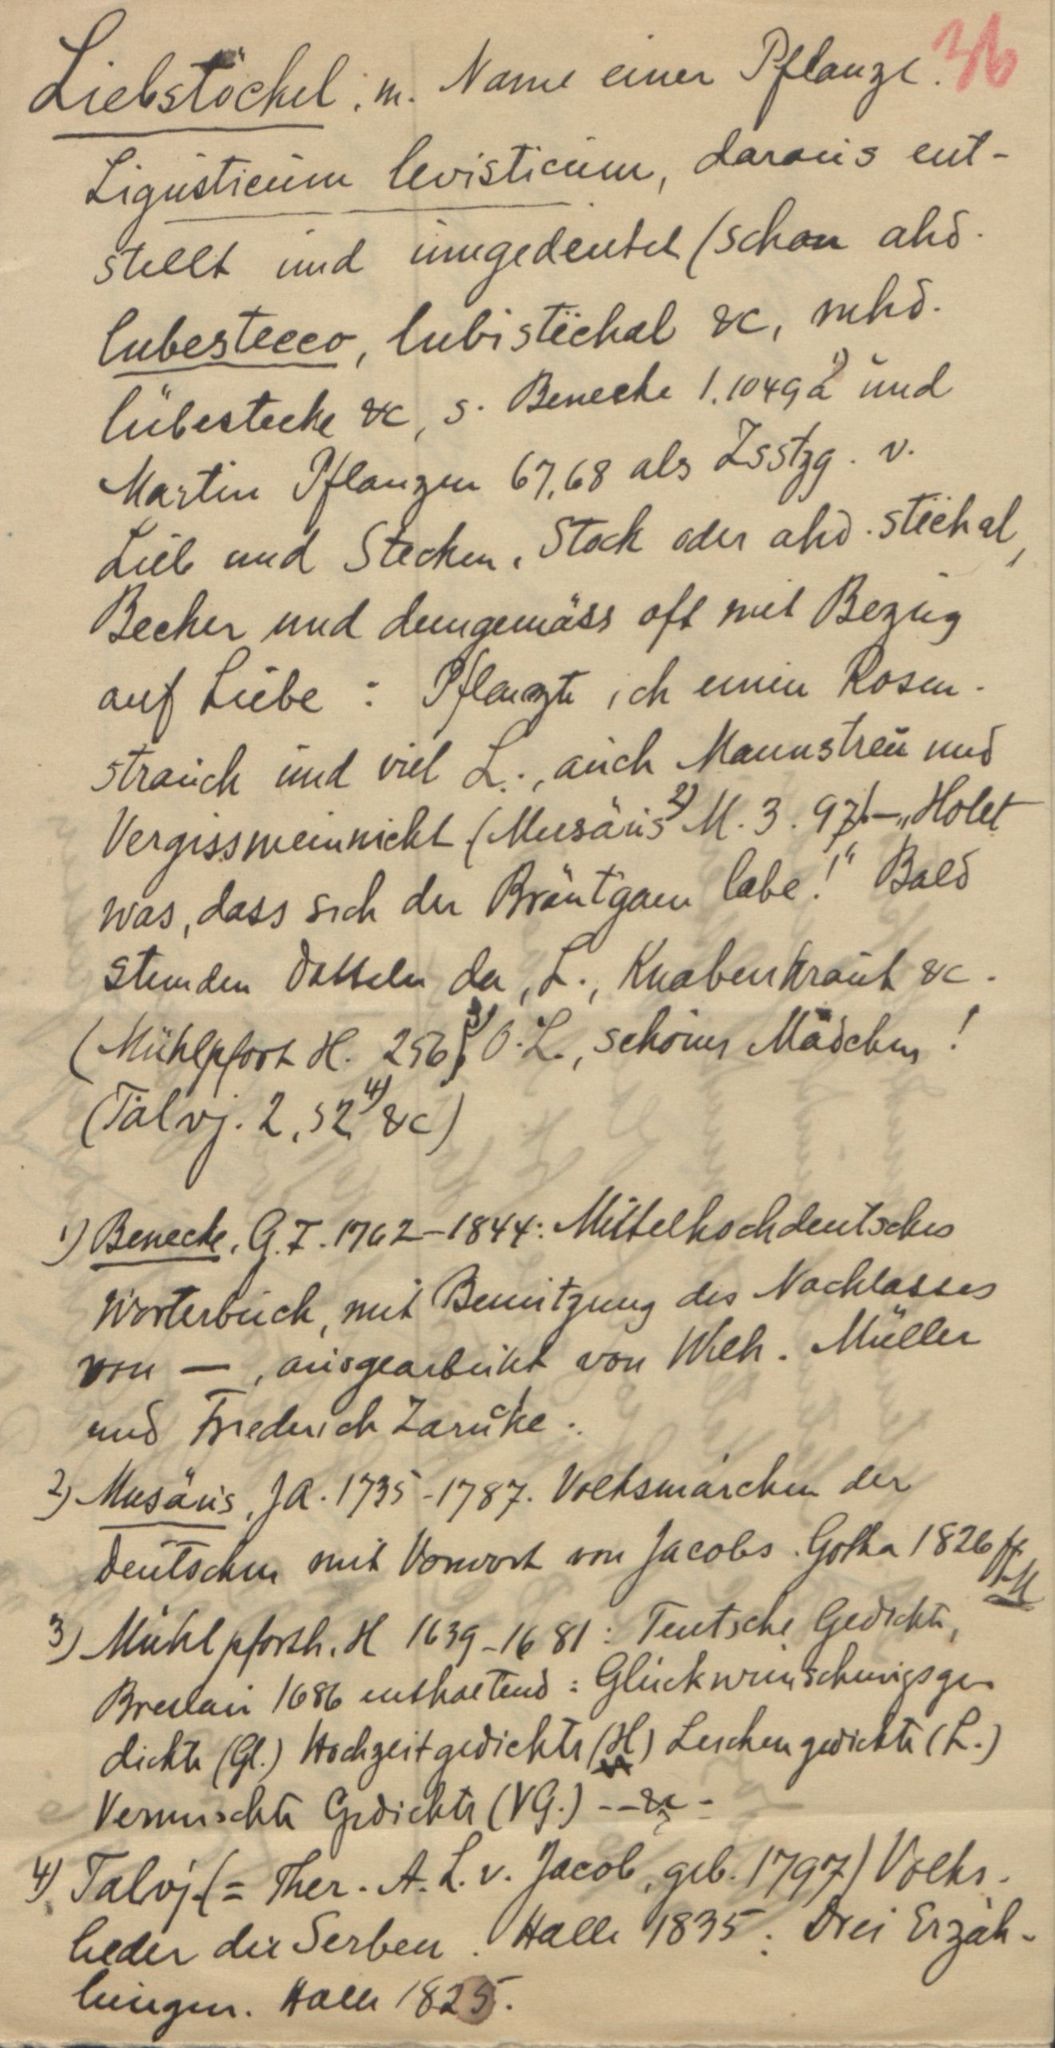 36
Liebstöckel, m. Name einer Pflanze.
Ligusticum levisticum, daraus ent-
stellt und umgedeutet (schon ahd.
lubestecco, lubistëchal &c, mhd.
lübestecke &c, s. Benecke 1.1049a 1) und
Martin Pflanzen 67,68 als Zsstzg. v.
Lieb und Stecken, Stock oder ahd. stëchal,
Becher und demgemäss oft mit Bezug
auf Liebe: Pflanzte ich einen Rosen-
strauch und viel L., auch Mannstreu und
Vergissmeinnicht (Musäus 2) M. 3. 97) – „Holet
was, dass sich der Bräutgam labe!“ Bald
stunden Datteln da, L., Knabenkraut &c.
(Mühlpfort H. 256) 3) O. L., schönes Mädchen!
(Talvj. 2, 52 4) &c)
1) Benecke, G. F. 1762–1844: Mittelhochdeutsches
Wörterbuch, mit Benutzung des Nachlasses
von —, ausgearbeitet von Wilh. Müller
und Friederich Zarncke.
2) Musäus, JA. 1735-1787. Volksmärchen der
Deutschen mit Vorwort von Jacobs. Gotha 1826 ff.
M
3) Mühlpforth, H 1639-1681: Teutsche Gedichte,
Breslau 1686 enthaltend: Glückwünschungsge-
dichte (Gl.) Hochzeitgedichte (H) Leichengedichte (L.)
Vermischte Gedichte (VG.) -- &c -
4) Talvj. (= Ther. A. L. v. Jacob, geb. 1797) Volks-
lieder der Serben. Halle 1835. Drei Erzäh-
lungen. Halle 1825.